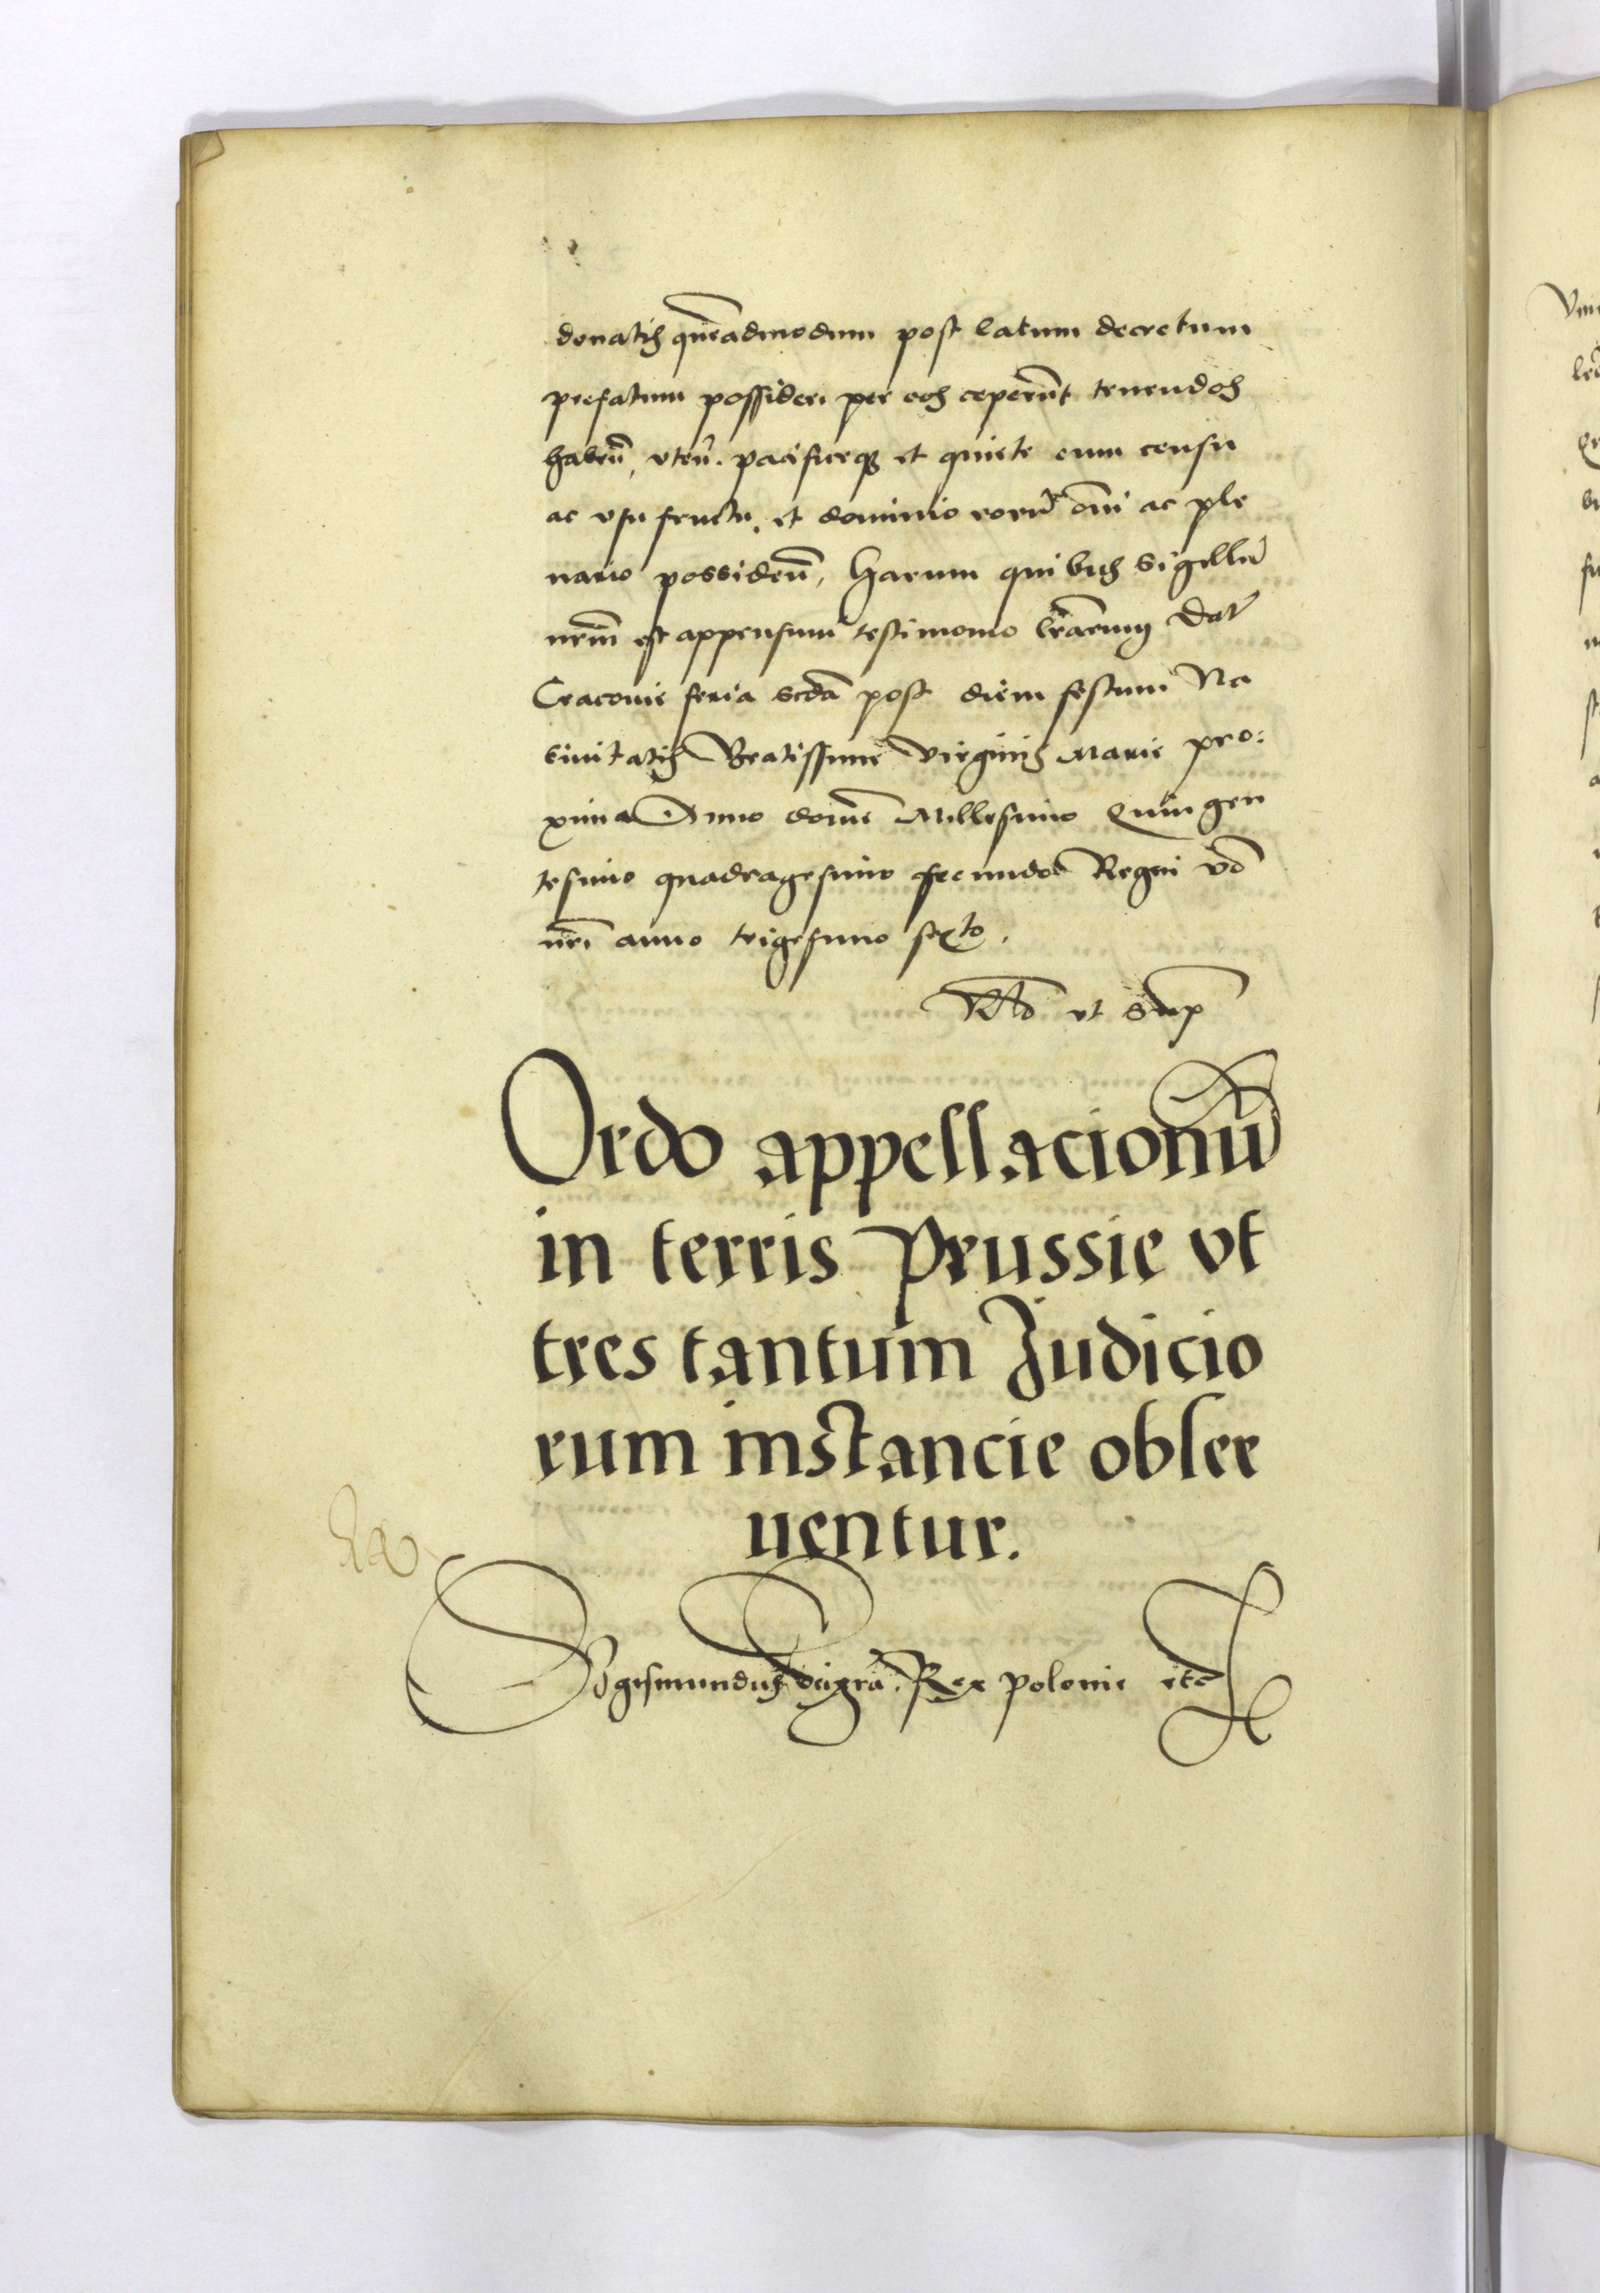 donatis quēadmodum post latum decretum
prefatum possideri per eos ceperūt tenendos
habeñ, vteñ. pacificeqꝫ et quiete cum censu
ac vsufructu, et dominio eorū oīi ac ple
nario possideñ, Harum quibus Sigillū
nrm̄ est appensum testimonio lr̄arum Dat
Cracovie feria scďa post diem festum Na
tiuitatis Beatissime virginis Marie pro:
xima Anno domī Millesimo Quingen
tesimo quadragesimo secundo Regni vō
nrī anno trigesimo sexto.
ut sup
Ordo appellacionū
in terris Prussie vt
tres tantum Judicio
rum instancie obser
uentur.
Sigismundus dei grā. Rex Polonie etc